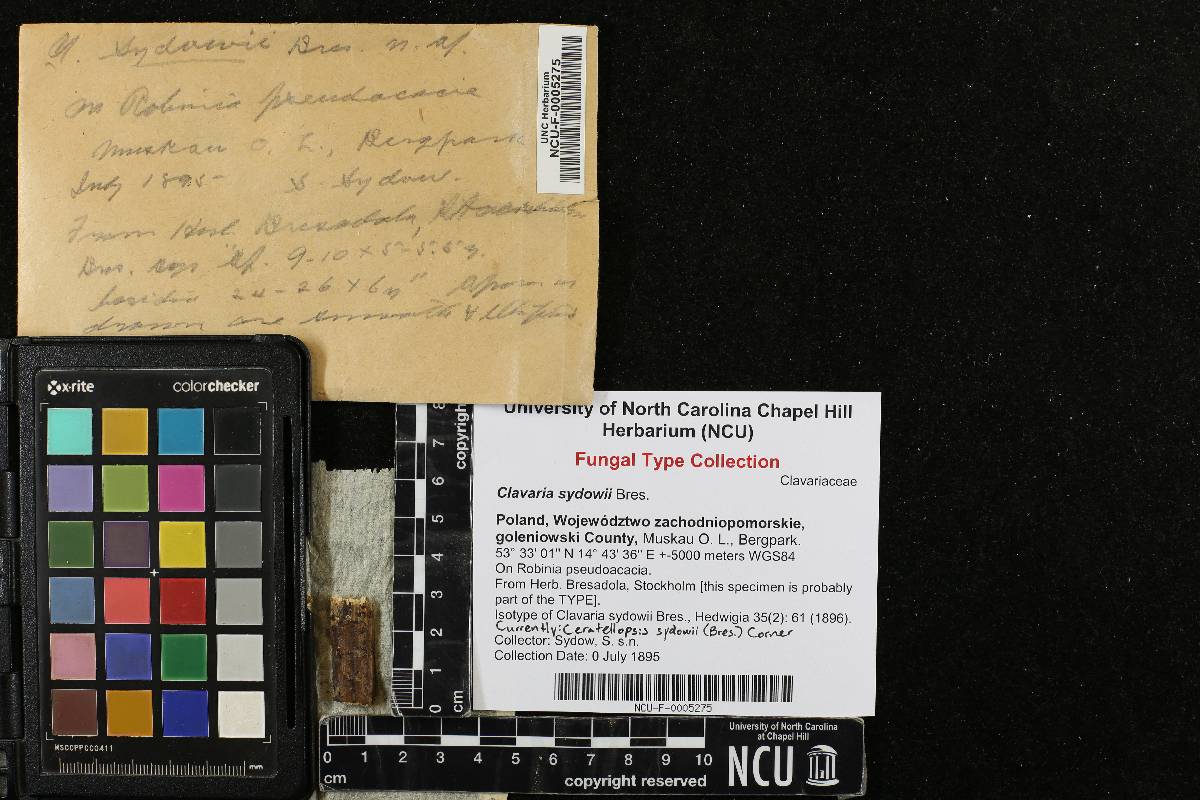 Cl. Sydowii Bres. n. sp.
on Robinia pseudacacia
Muskau O. L., Bergpark
July 1895 S. Sydow.
From Herb. Bresadola, Stockholm
Bres. says "sp. 9-10 x 5-5.5 μ.
basidia 24-26 x 6 μ" Spores as
drawn are smooth & elliptic
UNC Herbarium
NCU-F-0005275
x-rite colorchecker
MSCCPPCC0411
mm
copyright
8 7 6 5 4 3 2 1 0
cm
University of North Carolina Chapel Hill
Herbarium (NCU)
Fungal Type Collection
Clavariaceae
Clavaria sydowii Bres.
Poland, Województwo zachodniopomorskie,
goleniowski County, Muskau O. L., Bergpark.
53° 33' 01" N 14° 43' 36" E +-5000 meters WGS84
On Robinia pseudoacacia.
From Herb. Bresadola, Stockholm [this specimen is probably
part of the TYPE].
Isotype of Clavaria sydowii Bres., Hedwigia 35(2): 61 (1896).
Currently: Ceratellopsis sydowii (Bres.) Corner
Collector: Sydow, S. s.n.
Collection Date: 0 July 1895
NCU-F-0005275
0 1 2 3 4 5 6 7 8 9 10
cm
copyright reserved
University of North Carolina
at Chapel Hill
NCU